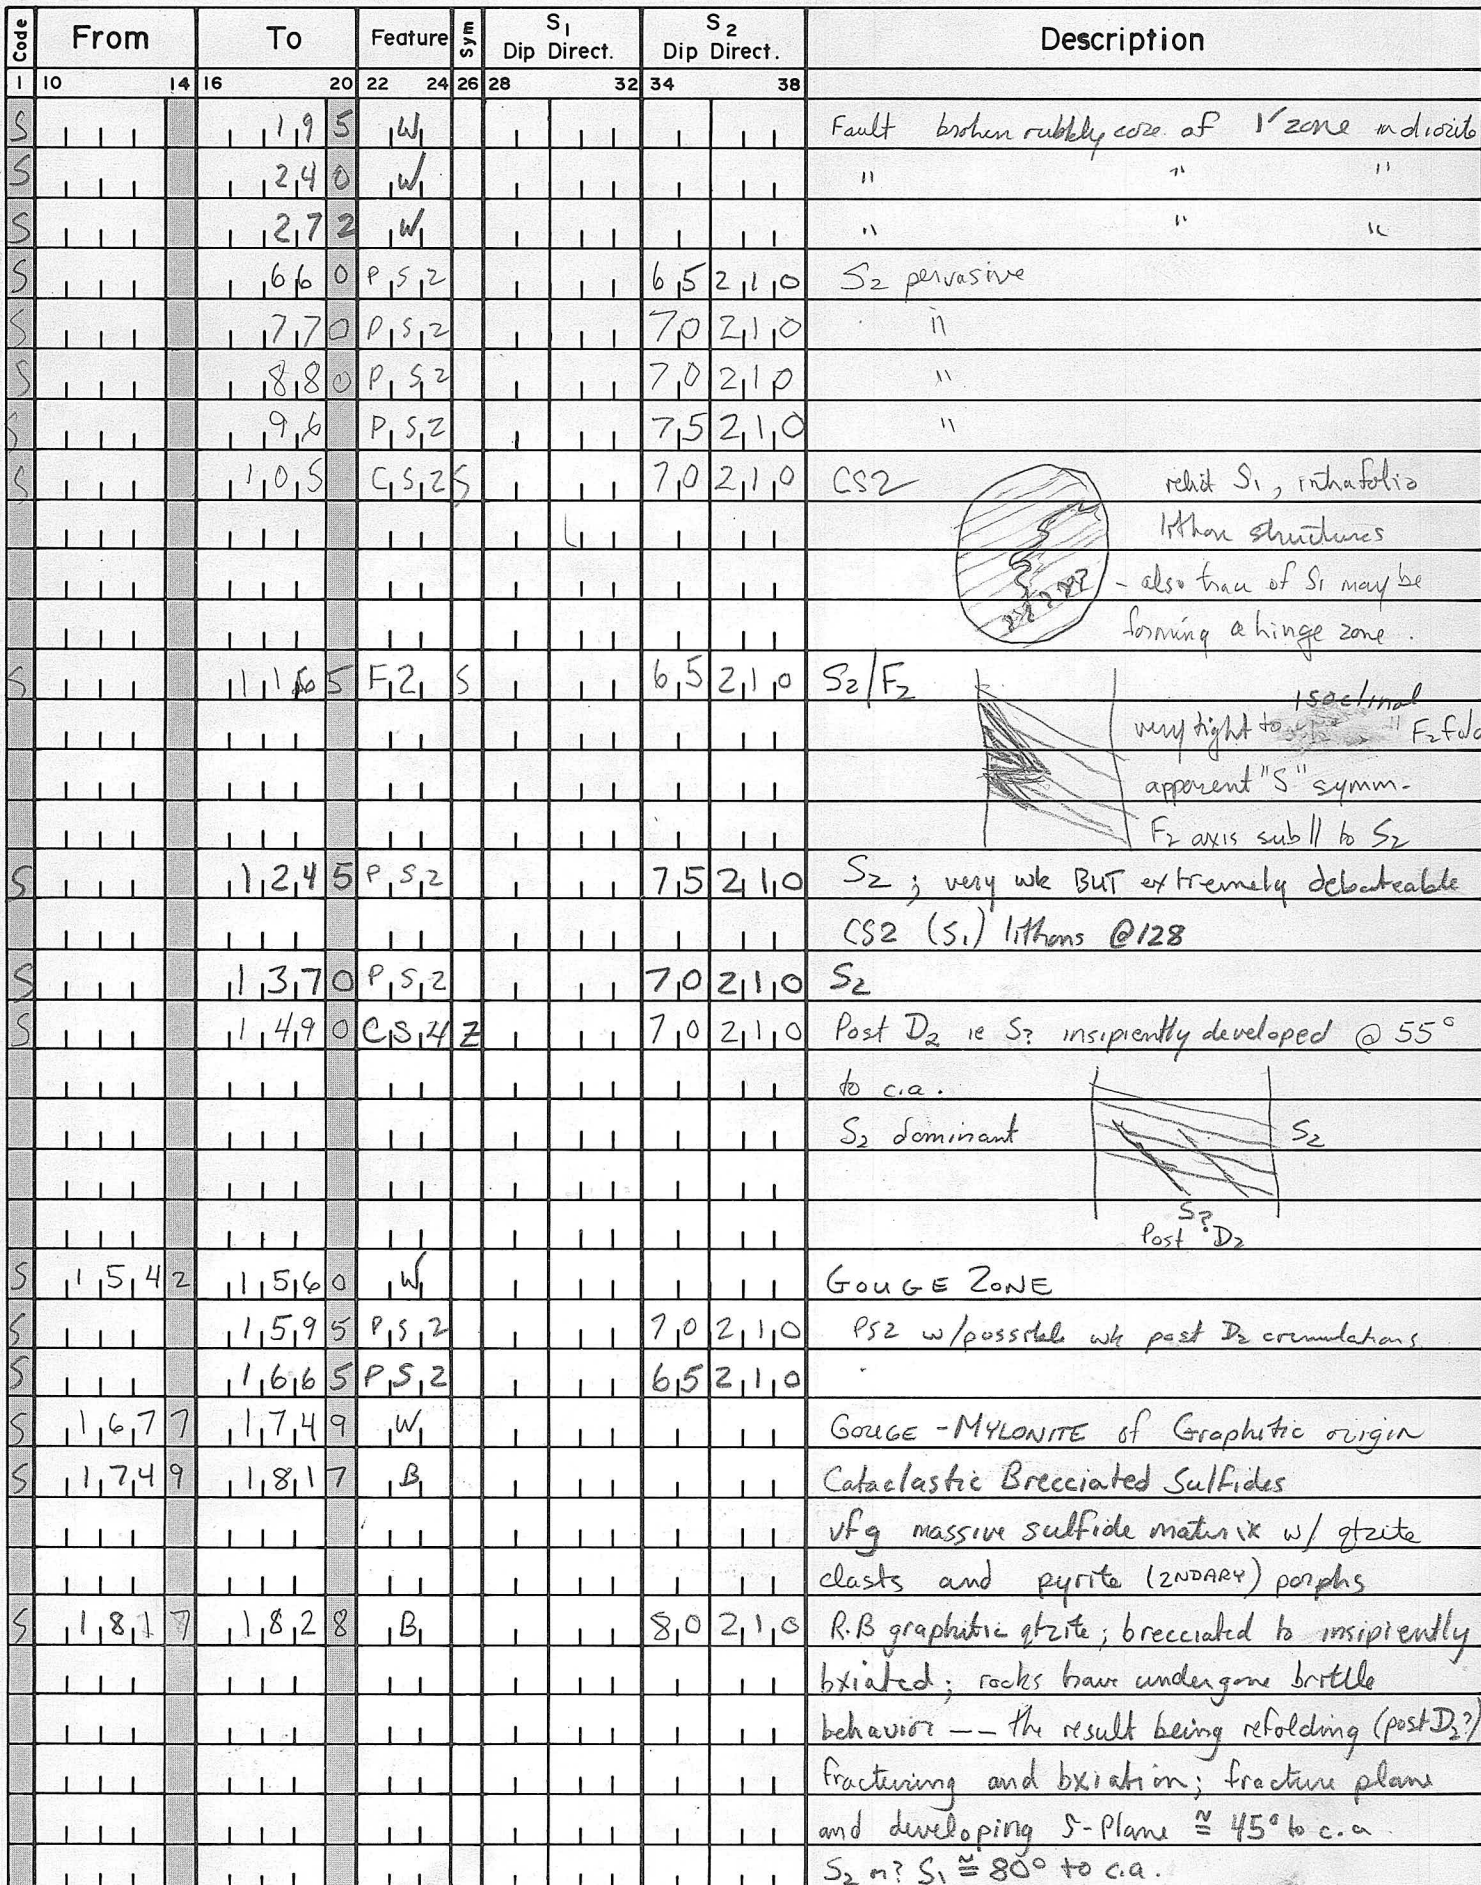 Code From To Feature Sym S1 Dip Direct. S2 Dip Direct. Description
1 10 14 16 20 22 24 26 28 32 34 38
S 195 W Fault broken rubbly core of 1' zone in diorite
S 240 W " " "
S 272 W " " "
S 660 PS2 65 210 S2 pervasive
S 770 PS2 70 210 "
S 880 PS2 70 210 "
S 96 PS2 75 210 "
S 105 CS2 S 70 210 CS2 relict S1, intrafolia
lithon structures
- also trace of S1 may be
forming a hinge zone.
S 1165 F2 S 65 210 S2/F2
isoclinal
very tight to " F2 fold
apparent "S" symm.
F2 axis sub || to S2
S 1245 PS2 75 210 S2; very wk BUT extremely debateable
CS2 (S1) lithons @128
S 1370 PS2 70 210 S2
S 1490 CS4 Z 70 210 Post D2 ie S? insipiently developed @ 55°
to c.a.
S2 dominant S2
S?
Post D2
S 1542 1560 W GOUGE ZONE
S 1595 PS2 70 210 PS2 w/possible wk post D2 crenulations
S 1665 PS2 65 210
S 1677 1749 W GOUGE - MYLONITE of Graphitic origin
S 1749 1817 B Cataclastic Brecciated Sulfides
vfg massive sulfide matrix w/ qtzite
clasts and pyrite (2NDARY) porphs
S 1817 1828 B 80 210 R.B graphitic qtzite; brecciated to insipiently
bxiated; rocks have undergone brittle
behavior -- the result being refolding (post D2?)
fracturing and bxiation; fracture plane
and developing S-Plane ≅ 45° to c.a.
S2 n? S1 ≅ 80° to c.a.